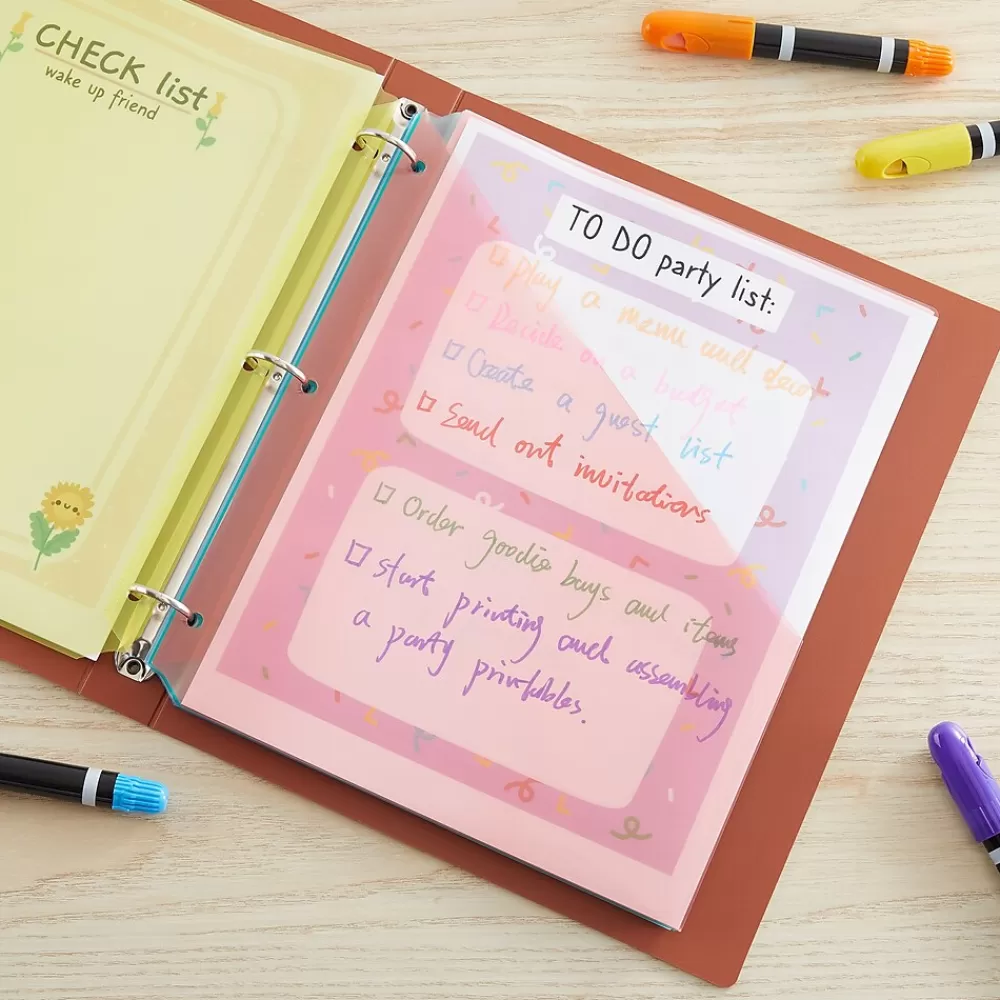 CHECK list
wake up friend
TO DO party list:
play a menu and decor
Decide on a budget
Create a guest list
Send out invitations
Order goodie bags and items
start printing and assembling
a party printables.